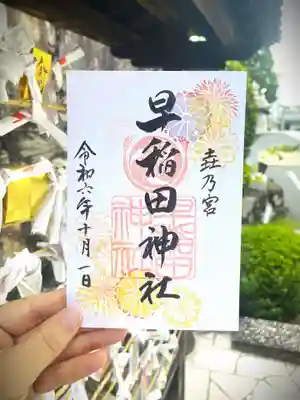 垚乃宮
早稲田神社
令和六年十月一日